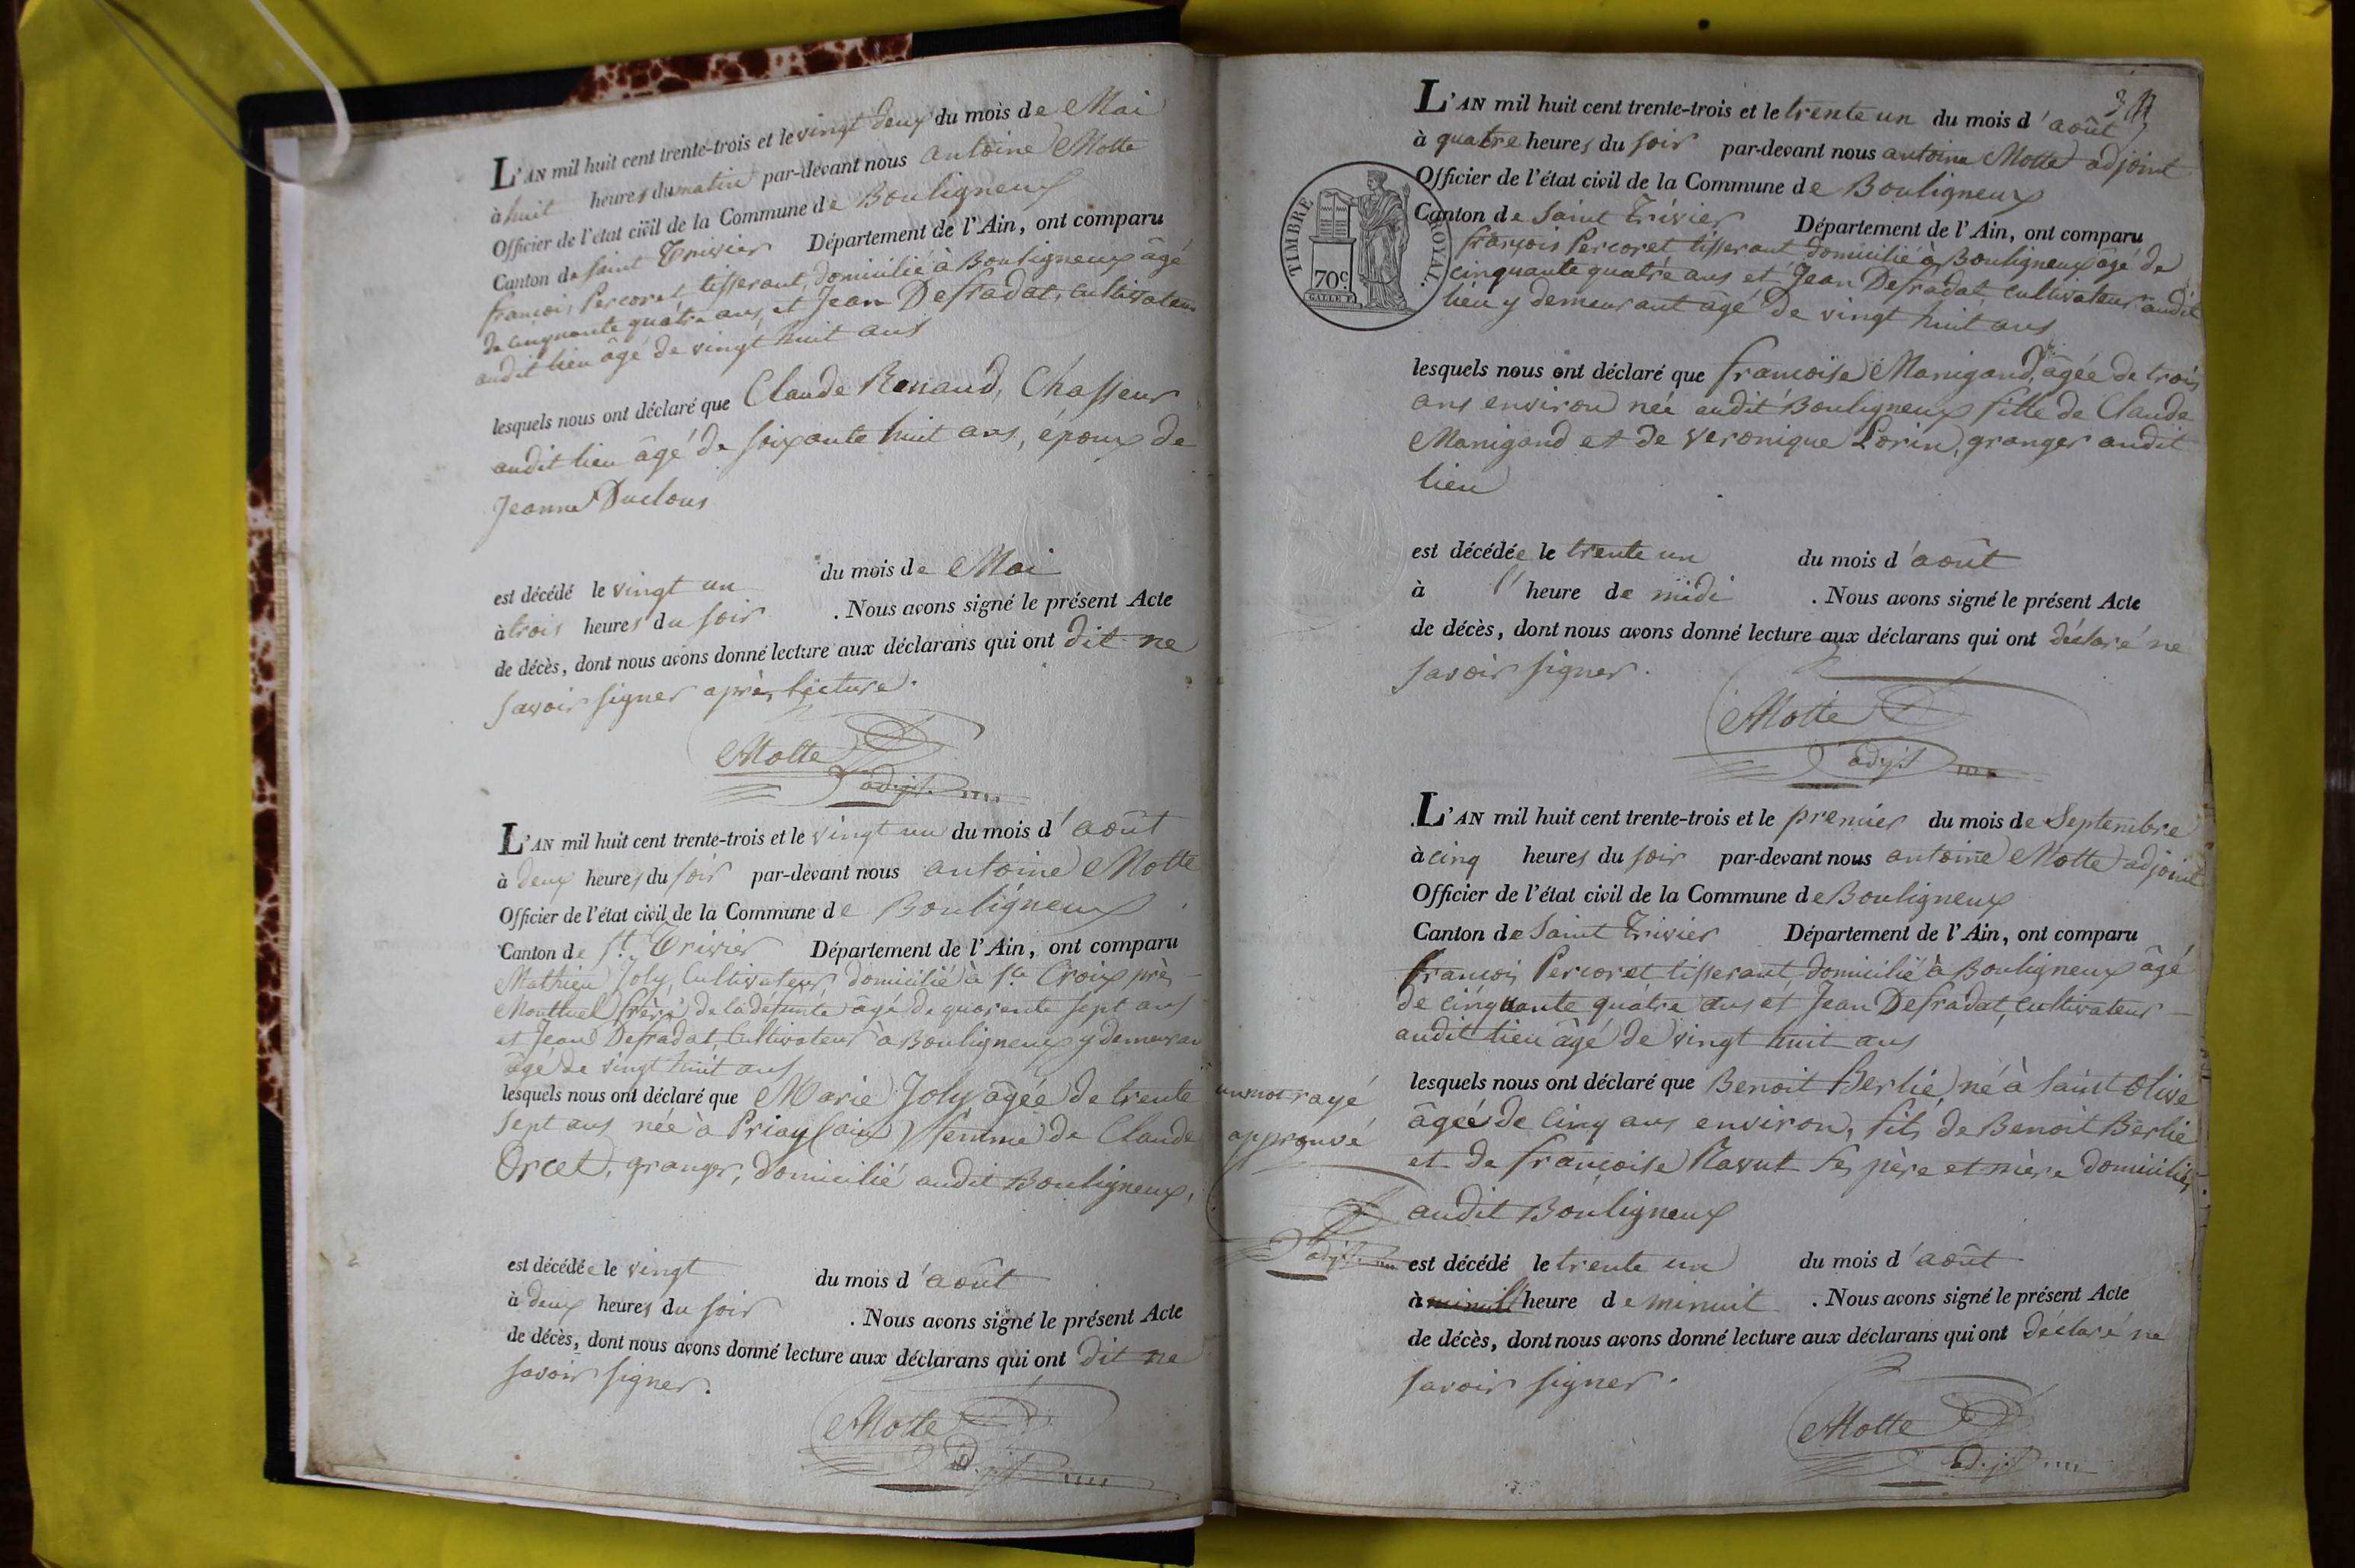 L'AN mil huit cent trente-trois et le vingt deux du mois de Mai
à huit heures du matin par-devant nous antoine Motte
Officier de l'état civil de la Commune de Bouligneux
Canton de Saint Trivier Département de l'Ain, ont comparu
françois Percoret tisserant, domicilié à Bouligneux âgé
de cinquante quatre ans, et Jean Defradat, cultivateur
audit lieu âgé de vingt huit ans
lesquels nous ont déclaré que Claude Renaud, Chasseur
audit lieu âgé de soixante huit ans, époux de
Jeanne Duclous
est décédé le vingt un du mois de Mai
à trois heures du soir . Nous avons signé le présent Acte
de décès, dont nous avons donné lecture aux déclarans qui ont dit ne
savoir signer après lecture.
Motte
adjt.
L'AN mil huit cent trente-trois et le vingt un du mois d'août
à deux heures du soir par-devant nous antoine Motte
Officier de l'état civil de la Commune de Bouligneux
Canton de St. Trivier Département de l'Ain, ont comparu
Mathieu Joly, cultivateur, domicilié à Ste Croix près
Montluel frère de la defunte âgé de quarente sept ans
et Jean Defradat, cultivateur à Bouligneux y demeuran
âgé de vingt huit ans
lesquels nous ont déclaré que Marie Joly âgée de trente
sept ans née à Priay (ain) femme de Claude
Orcet, granger, domicilié audit Bouligneux,
est décédée le vingt du mois d'août
à deux heures du soir . Nous avons signé le présent Acte
de décès, dont nous avons donné lecture aux déclarans qui ont dit ne
savoir signer.
Motte
adjt
L'AN mil huit cent trente-trois et le trente un du mois d'août
à quatre heures du soir par-devant nous antoine Motte adjoint
Officier de l'état civil de la Commune de Bouligneux
Canton de Saint Trivier Département de l'Ain, ont comparu
françois Percoret tisserant domicilié à Bouligneux âgé de
cinquante quatre ans et Jean Defradat, cultivateur audit
lieu y demeurant agé de vingt huit ans
TIMBRE ROYAL.
70c
lesquels nous ont déclaré que françoise Manigand, âgée de trois
ans environ née audit Bouligneux fille de Claude
Manigand et de veronique Lorin, granger audit
lieu
est décédée le trente un du mois d'août
à l'heure de midi . Nous avons signé le présent Acte
de décès, dont nous avons donné lecture aux déclarans qui ont déclaré ne
savoir signer.
Motte
adjt
L'AN mil huit cent trente-trois et le premier du mois de Septembre
à cinq heures du soir par-devant nous antoine Motte adjoint
Officier de l'état civil de la Commune de Bouligneux
Canton de Saint Trivier Département de l'Ain, ont comparu
françois Percoret tisserant, domicilié à Bouligneux âgé
de cinquante quatre ans et Jean Defradat, cultivateur
audit lieu âgé de vingt huit ans
lesquels nous ont déclaré que Benoit Berlie, né à Saint Olive
âgée de cinq ans environ, fils de Benoit Berlie
et de françoise Navut ses père et mère domiciliés
audit Bouligneux
est décédé le trente un du mois d'août
à minuit l'heure de minuit . Nous avons signé le présent Acte
de décès, dont nous avons donné lecture aux déclarans qui ont déclaré ne
savoir signer.
Motte
adjt
un mot rayé
approuvé
adjt